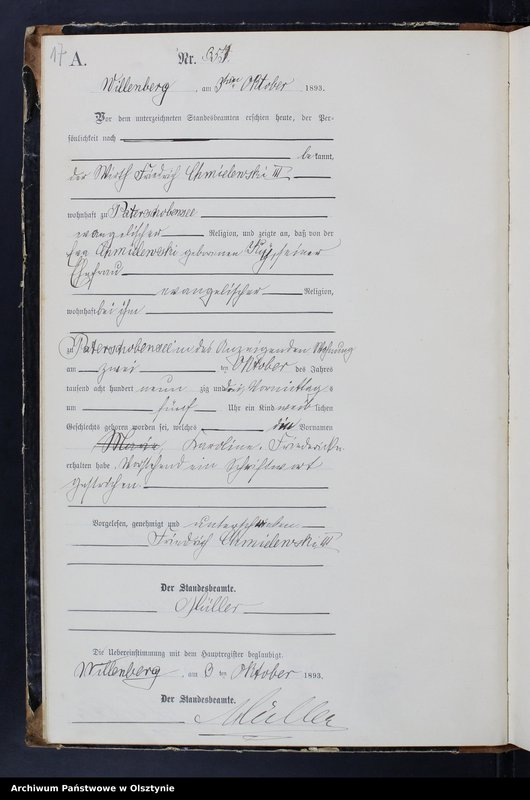 17 A. Nr. 254.
Willenberg, am 3ten Oktober 1893.
Vor dem unterzeichneten Standesbeamten erschien heute, der Per-
sönlichkeit nach
bekannt,
der Wirth Friedrich Chmielewski III
wohnhaft zu Paterschobensee
evangelischer Religion, und zeigte an, daß von der
Chmielewski geborenen seiner
Ehefrau
evangelischer Religion,
wohnhaft bei ihm
zu Paterschobensee in des Anzeigenden Wohnung
am zwei ten Oktober des Jahres
tausend acht hundert neun zig und drei Vormittags
um fünf Uhr ein Kind weib lichen
Geschlechts geboren worden sei, welches die Vornamen
Marie Karoline, Friederike
erhalten habe. Vorstehend ein Schriftwort
gestrichen.
Vorgelesen, genehmigt und unterschrieben
Friedrich Chmielewski III
Der Standesbeamte.
Müller
Die Uebereinstimmung mit dem Hauptregister beglaubigt.
Willenberg, am 3 ten Oktober 1893.
Der Standesbeamte.
Müller
Archiwum Państwowe w Olsztynie